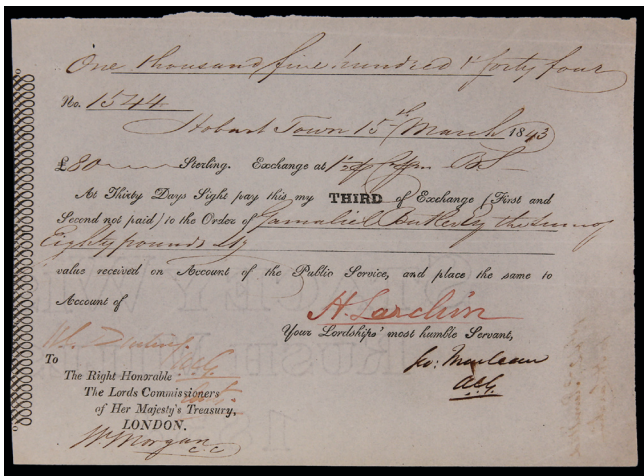 One thousand five hundred & forty four
No. 1544
Hobart Town 15th March 1843
£80 Sterling. Exchange at
At Thirty Days Sight pay this my THIRD of Exchange (First and
Second not paid) to the Order of Gamaliel Butler Esq the sum of
Eighty pounds Stg
value received on Account of the Public Service, and place the same to
Account of
Your Lordships' most humble Servant,
To
The Right Honorable
The Lords Commissioners
of Her Majesty's Treasury,
LONDON.
Wm Morgan
C.C.